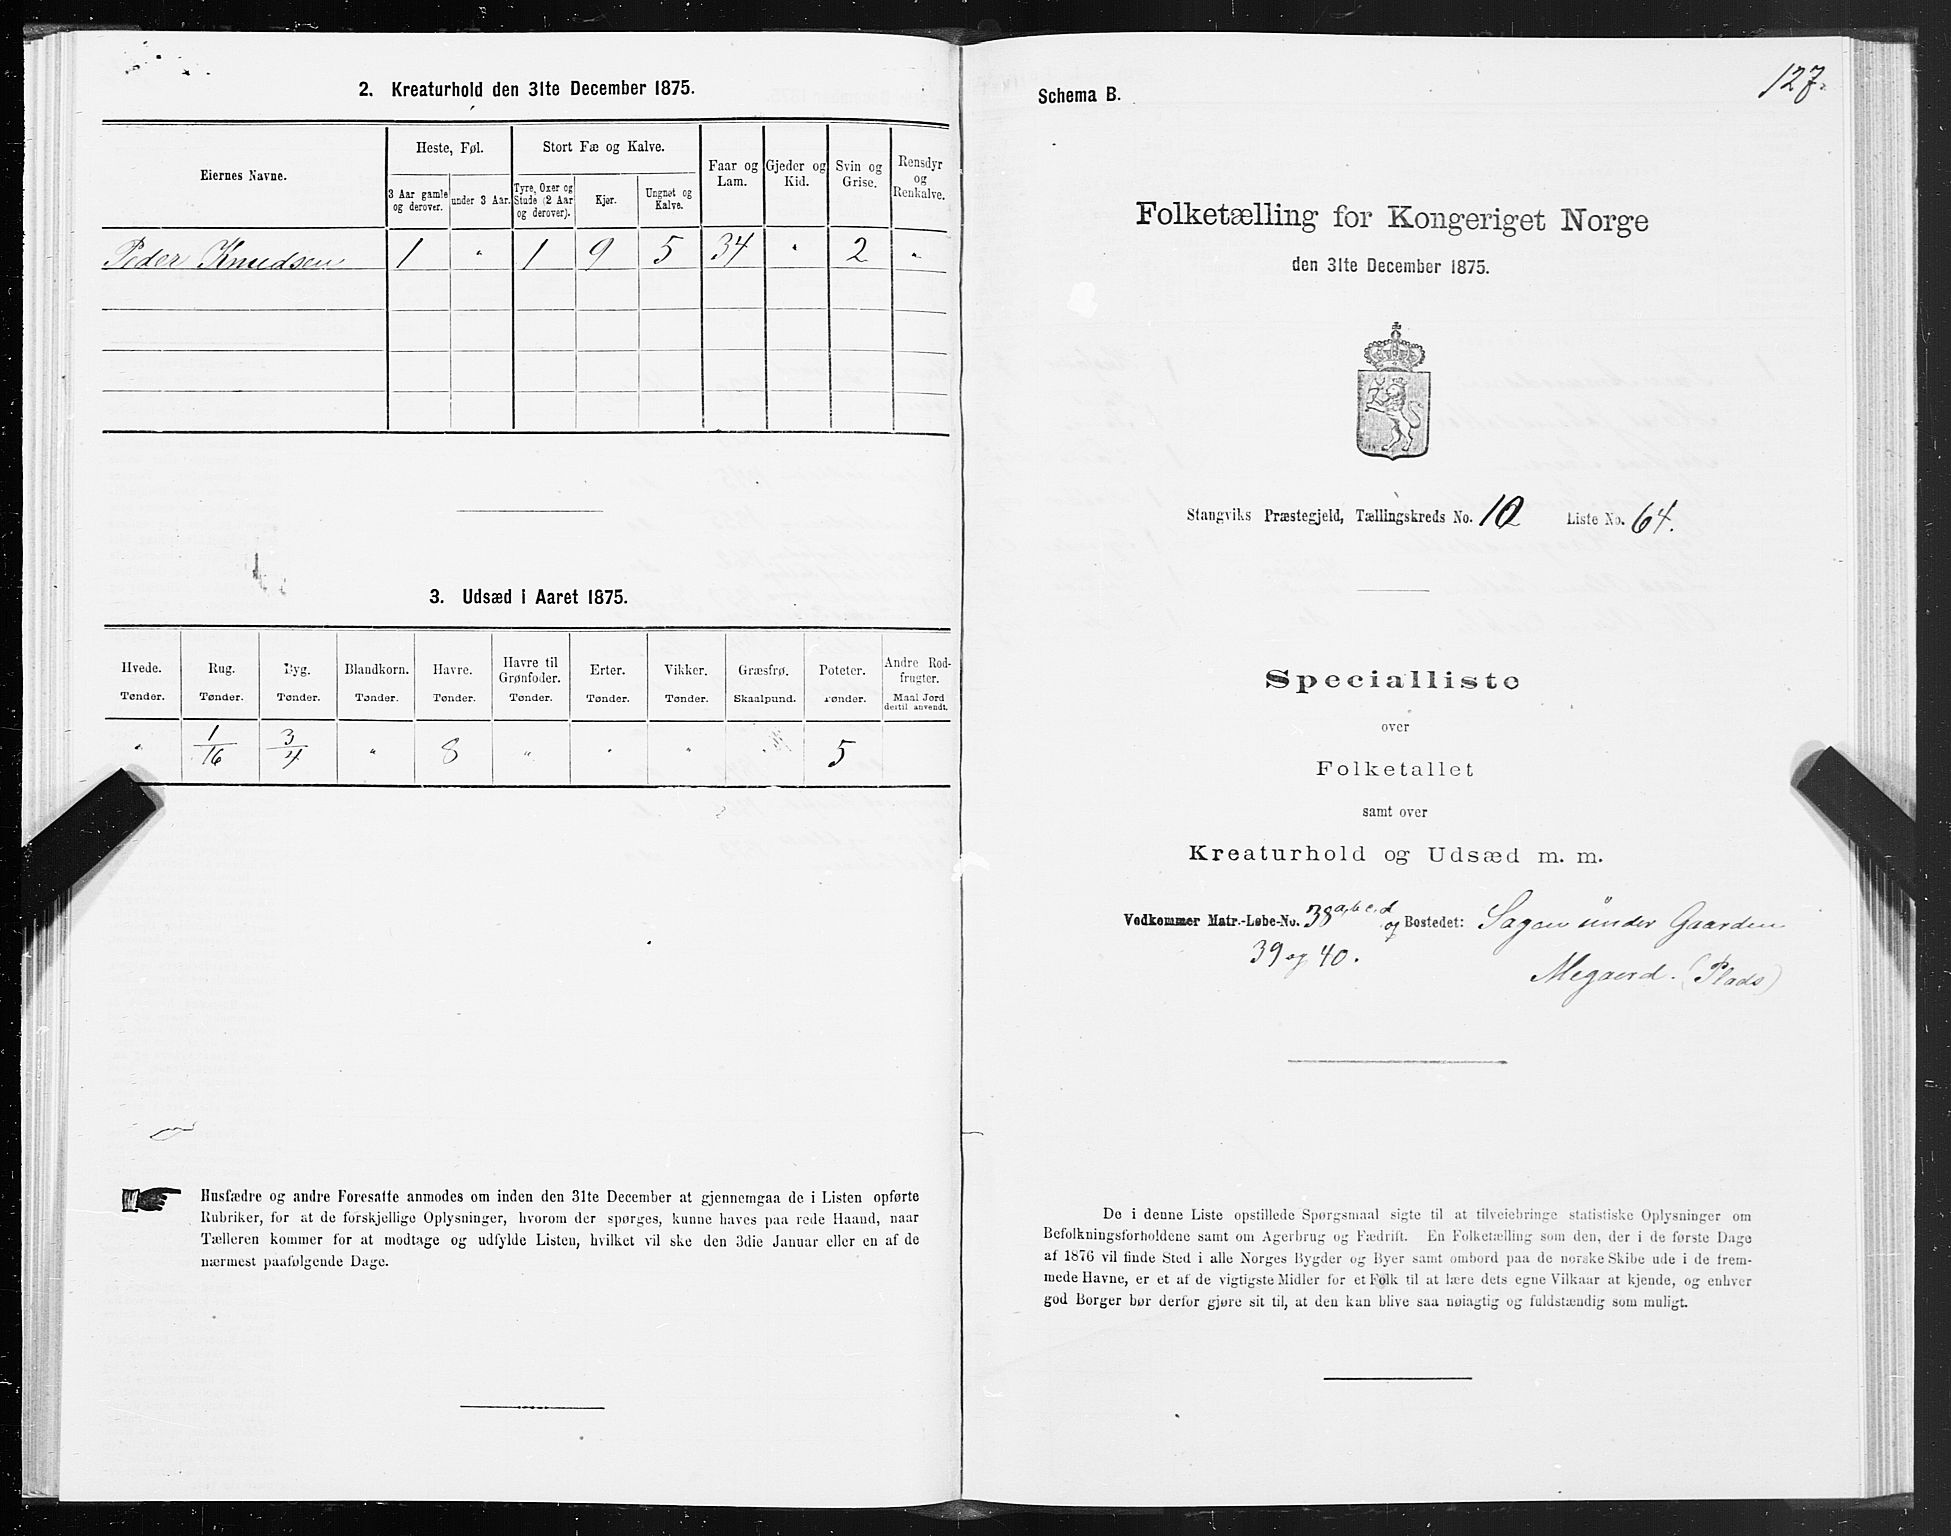 2. Kreaturhold den 31te December 1875.
Eiernes Navne.
Heste, Føl.
Stort Fæ og Kalve.
Faar og Lam.
Gjeder og Kid.
Svin og Grise.
Rensdyr og Renkalve.
3 Aar gamle og derover.
under 3 Aar.
Tyre, Oxer og Stude (2 Aar og derover).
Kjør.
Ungnøt og Kalve.
Peder Knudsen 1 " 1 9 5 34 " 2 "
3. Udsæd i Aaret 1875.
Hvede. Rug. Byg. Blandkorn. Havre. Havre til Grønfoder. Erter. Vikker. Græsfrø. Poteter. Andre Rodfrugter.
Tønder. Tønder. Tønder. Tønder. Tønder. Tønder. Tønder. Tønder. Skaalpund. Tønder. Maal Jord dertil anvendt.
" 1/16 3/4 " 8 " " " 5
Husfædre og andre Foresatte anmodes om inden den 31te December at gjennemgaa de i Listen opførte
Rubriker, for at de forskjellige Oplysninger, hvorom der spørges, kunne haves paa rede Haand, naar
Tælleren kommer for at modtage og udfylde Listen, hvilket vil ske den 3die Januar eller en af de
nærmest paafølgende Dage.
127.
Schema B.
Folketælling for Kongeriget Norge
den 31te December 1875.
Stangviks Præstegjeld, Tællingskreds No. 10 Liste No. 64.
Specialliste
over
Folketallet
samt over
Kreaturhold og Udsæd m. m.
Vedkommer Matr.-Løbe-No. 38 a, b c, d og Bostedet: Sagen under Gaarden
39 og 40. Megaard. (Plads)
De i denne Liste opstillede Spørgsmaal sigte til at tilveiebringe statistiske Oplysninger om
Befolkningsforholdene samt om Agerbrug og Fædrift. En Folketælling som den, der i de første Dage
af 1876 vil finde Sted i alle Norges Bygder og Byer samt ombord paa de norske Skibe ude i de frem-
mede Havne, er et af de vigtigste Midler for et Folk til at lære dets egne Vilkaar at kjende, og enhver
god Borger bør derfor gjøre sit til, at den kan blive saa nøiagtig og fuldstændig som muligt.